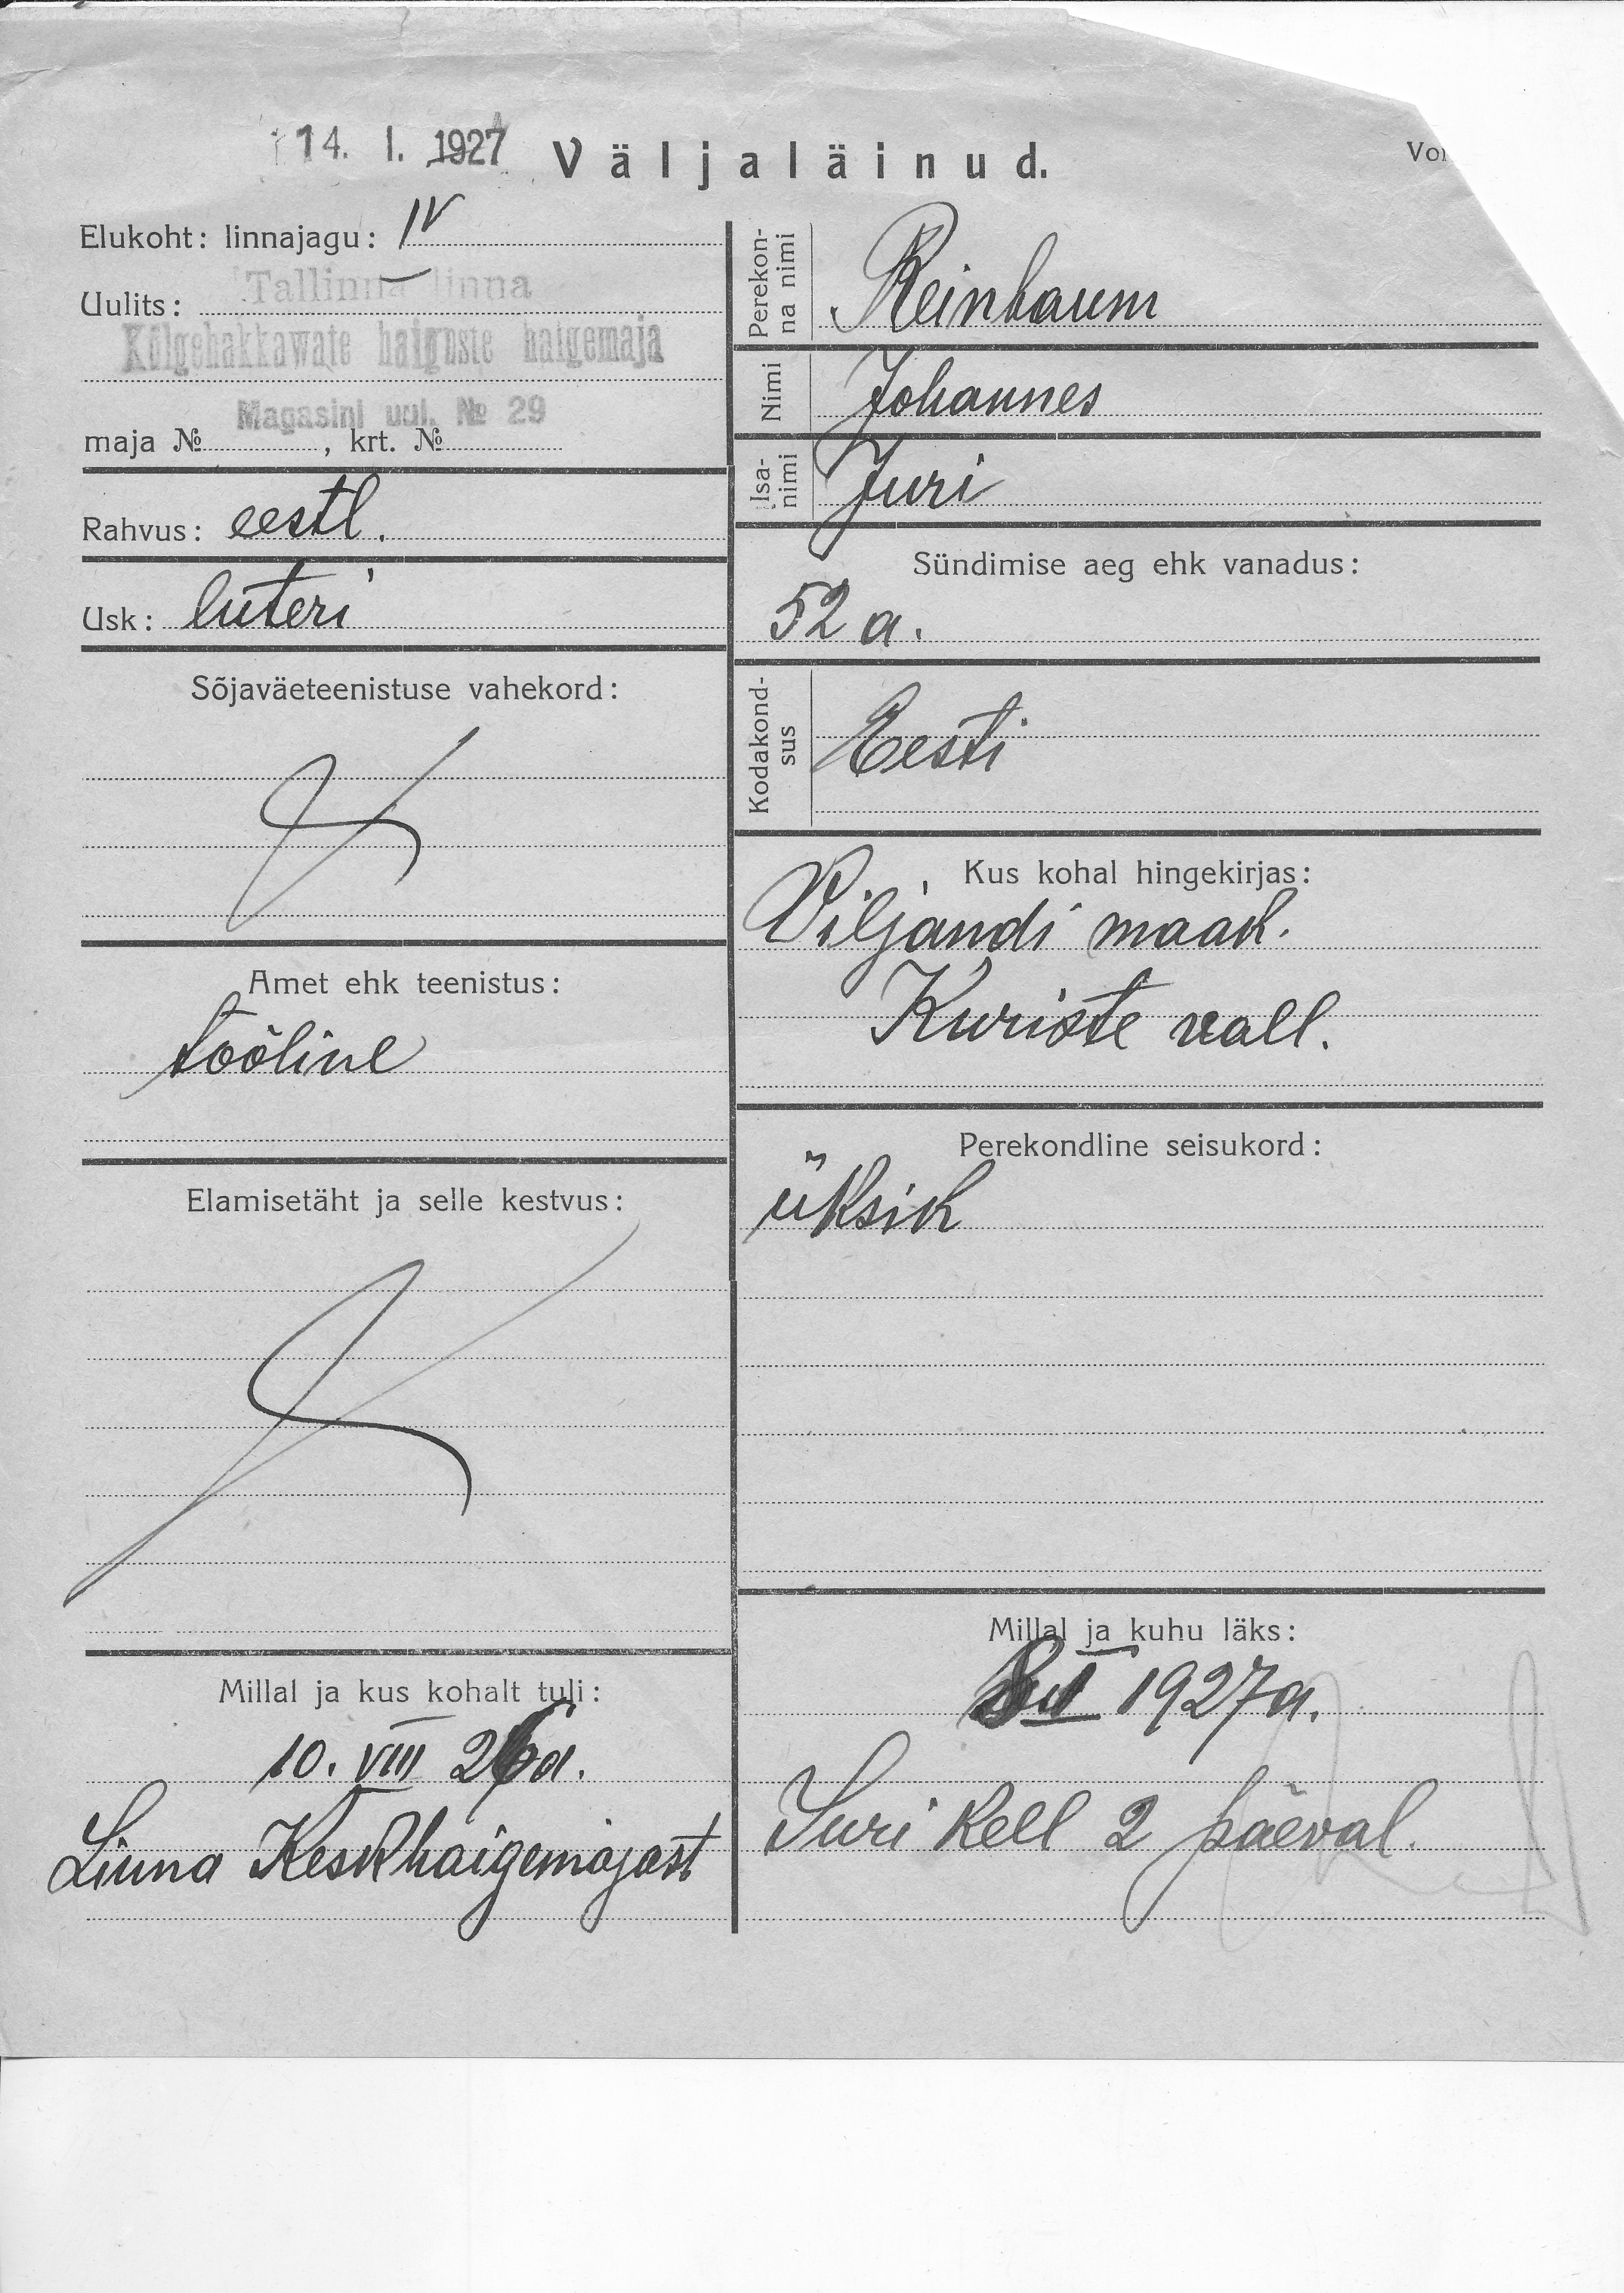 14. I. 1927 Väljaläinud.
Elukoht: linnajagu: IV
Uulits: Tallinna linna
Külgehakkawate haiguste haigemaja
Magasini uul. № 29
maja № , krt. №
Rahvus: eestl.
Usk: luteri
Sõjaväeteenistuse vahekord:
Amet ehk teenistus:
tööline
Elamisetäht ja selle kestvus:
Millal ja kus kohalt tuli:
10. VIII 26 a.
Linna Keskhaigemajast
Perekon-
na nimi
Reinbaum
Nimi Johannes
Isa-
nimi
Juri
Sündimise aeg ehk vanadus:
52 a.
Kodakond-
sus
Eesti
Kus kohal hingekirjas:
Viljandi maak.
Kuriste vall.
Perekondline seisukord:
üksik
Millal ja kuhu läks:
1927 a.
Suri kell 2 päeval.